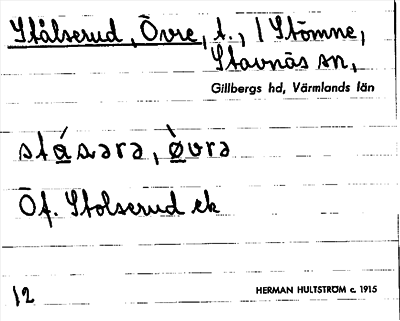 Stålserud, Övre, t., / Stömne,
Stavnäs sn,
Gillbergs hd, Värmlands län
stá̱sərə, ø̱̀vrə
Öf. Stolserud ek
12 HERMAN HULTSTRÖM c. 1915